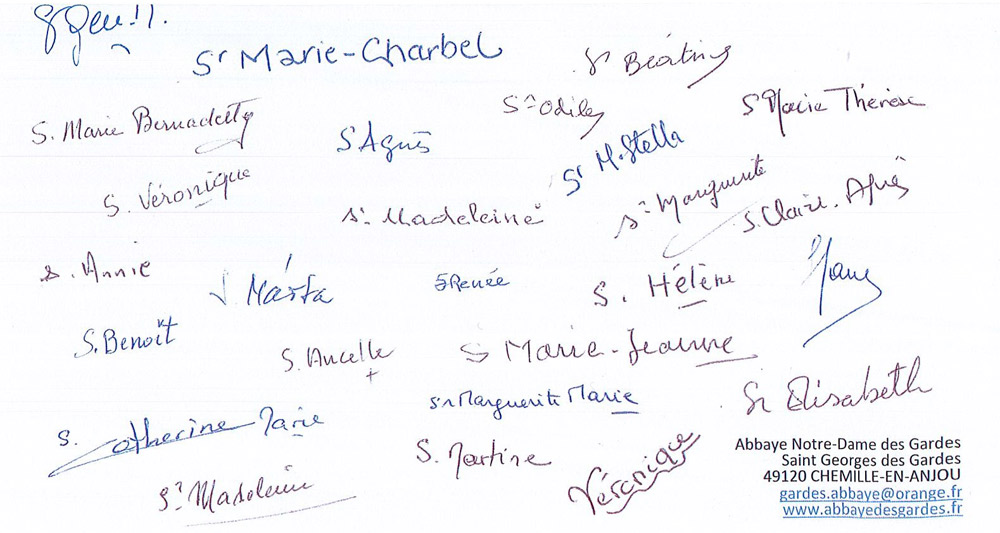 Sr Marie-Charbel
Sr Béatrice
S. Marie Bernadette
Sr Odile
S Marie Thérèse
S Agnès
Sr M. Stella
S. Véronique
Sr Madeleine
Sr Marguerite
S. Claire. Agnès
S. Annie
S. Marta
S Renée
S. Hélène
S. Benoît
S. Ancelle
S Marie-Jeanne
Sr Marguerite Marie
Sr Elisabeth
S. Catherine Marie
S. Martine
Véronique
Sr Madeleine
Abbaye Notre-Dame des Gardes
Saint Georges des Gardes
49120 CHEMILLE-EN-ANJOU
gardes.abbaye@orange.fr
www.abbayedesgardes.fr